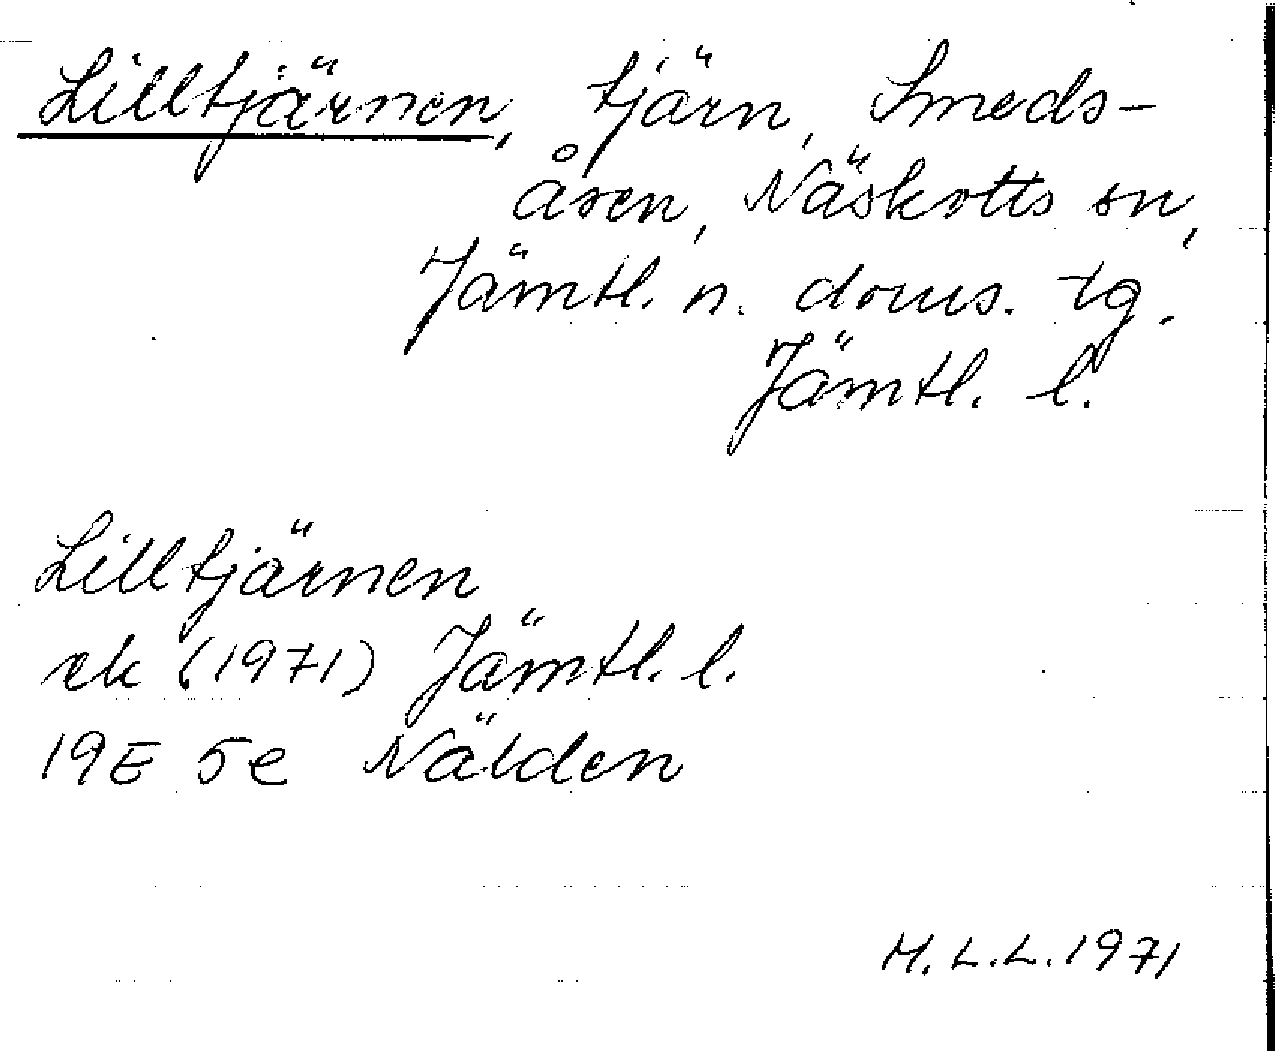 Lilltjärnen, tjärn, Smeds-
åsen, Näskotts sn,
Jämtl. n. doms. tg.
Jämtl. l.
Lilltjärnen
ek (1971) Jämtl. l.
19E 5e Nälden
M.L.L. 1971